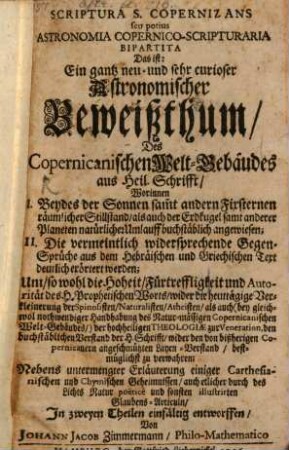 SCRIPTURA S. COPERNIZANS
seu potius
ASTRONOMIA COPERNICO-SCRIPTURARIA
BIPARTITA
Das ist:
Ein gantz neu- und sehr curioser
Astronomischer
Beweißthum/
Des
Copernicanischen Welt-Gebäudes
aus Heil. Schrifft/
Worinnen
I. Beydes der Sonnen samt andern Firsternen
räumlicher Stillstand/ als auch der Erdkugel samt anderer
Planeten natürlicher Umlauff buchstäblich angewiesen;
II. Die vermeintlich widersprechende Gegen-
Sprüche aus dem Hebräischen und Griechischen Text
deutlich erörtert werden;
Um/ so wohl die Hoheit/ Fürtreffligkeit und Auto-
rität des H. Prophetischen Worts/ wider die heuntägige Ver-
kleinerung der Spinosisten/ Naturalisten/ Atheisten/ als auch/ bey gleich-
wol nothwendiger Handhabung des Natur-mässigen Copernicanischen
Welt-Gebäudes/ der hochheiligen THEOLOGIÆ zur Veneration, den
buchstäblichen Verstand der H. Schrifft/ wider den von bißherigen Co-
pernicanern angeschmützten Layen-Verstand/ best-
müglichst zu verwahren;
Nebens untermengter Erläuterung einiger Carthesia-
nischen und Chymischen Geheimnüssen/ auch etlicher durch des
Lichts Natur poëticè und sonsten illustrirten
Glaubens-Articuln/
In zweyen Theilen einfältig entworffen/
Von
JOHANN JACOB Zimmermann/ Philo-Mathematico